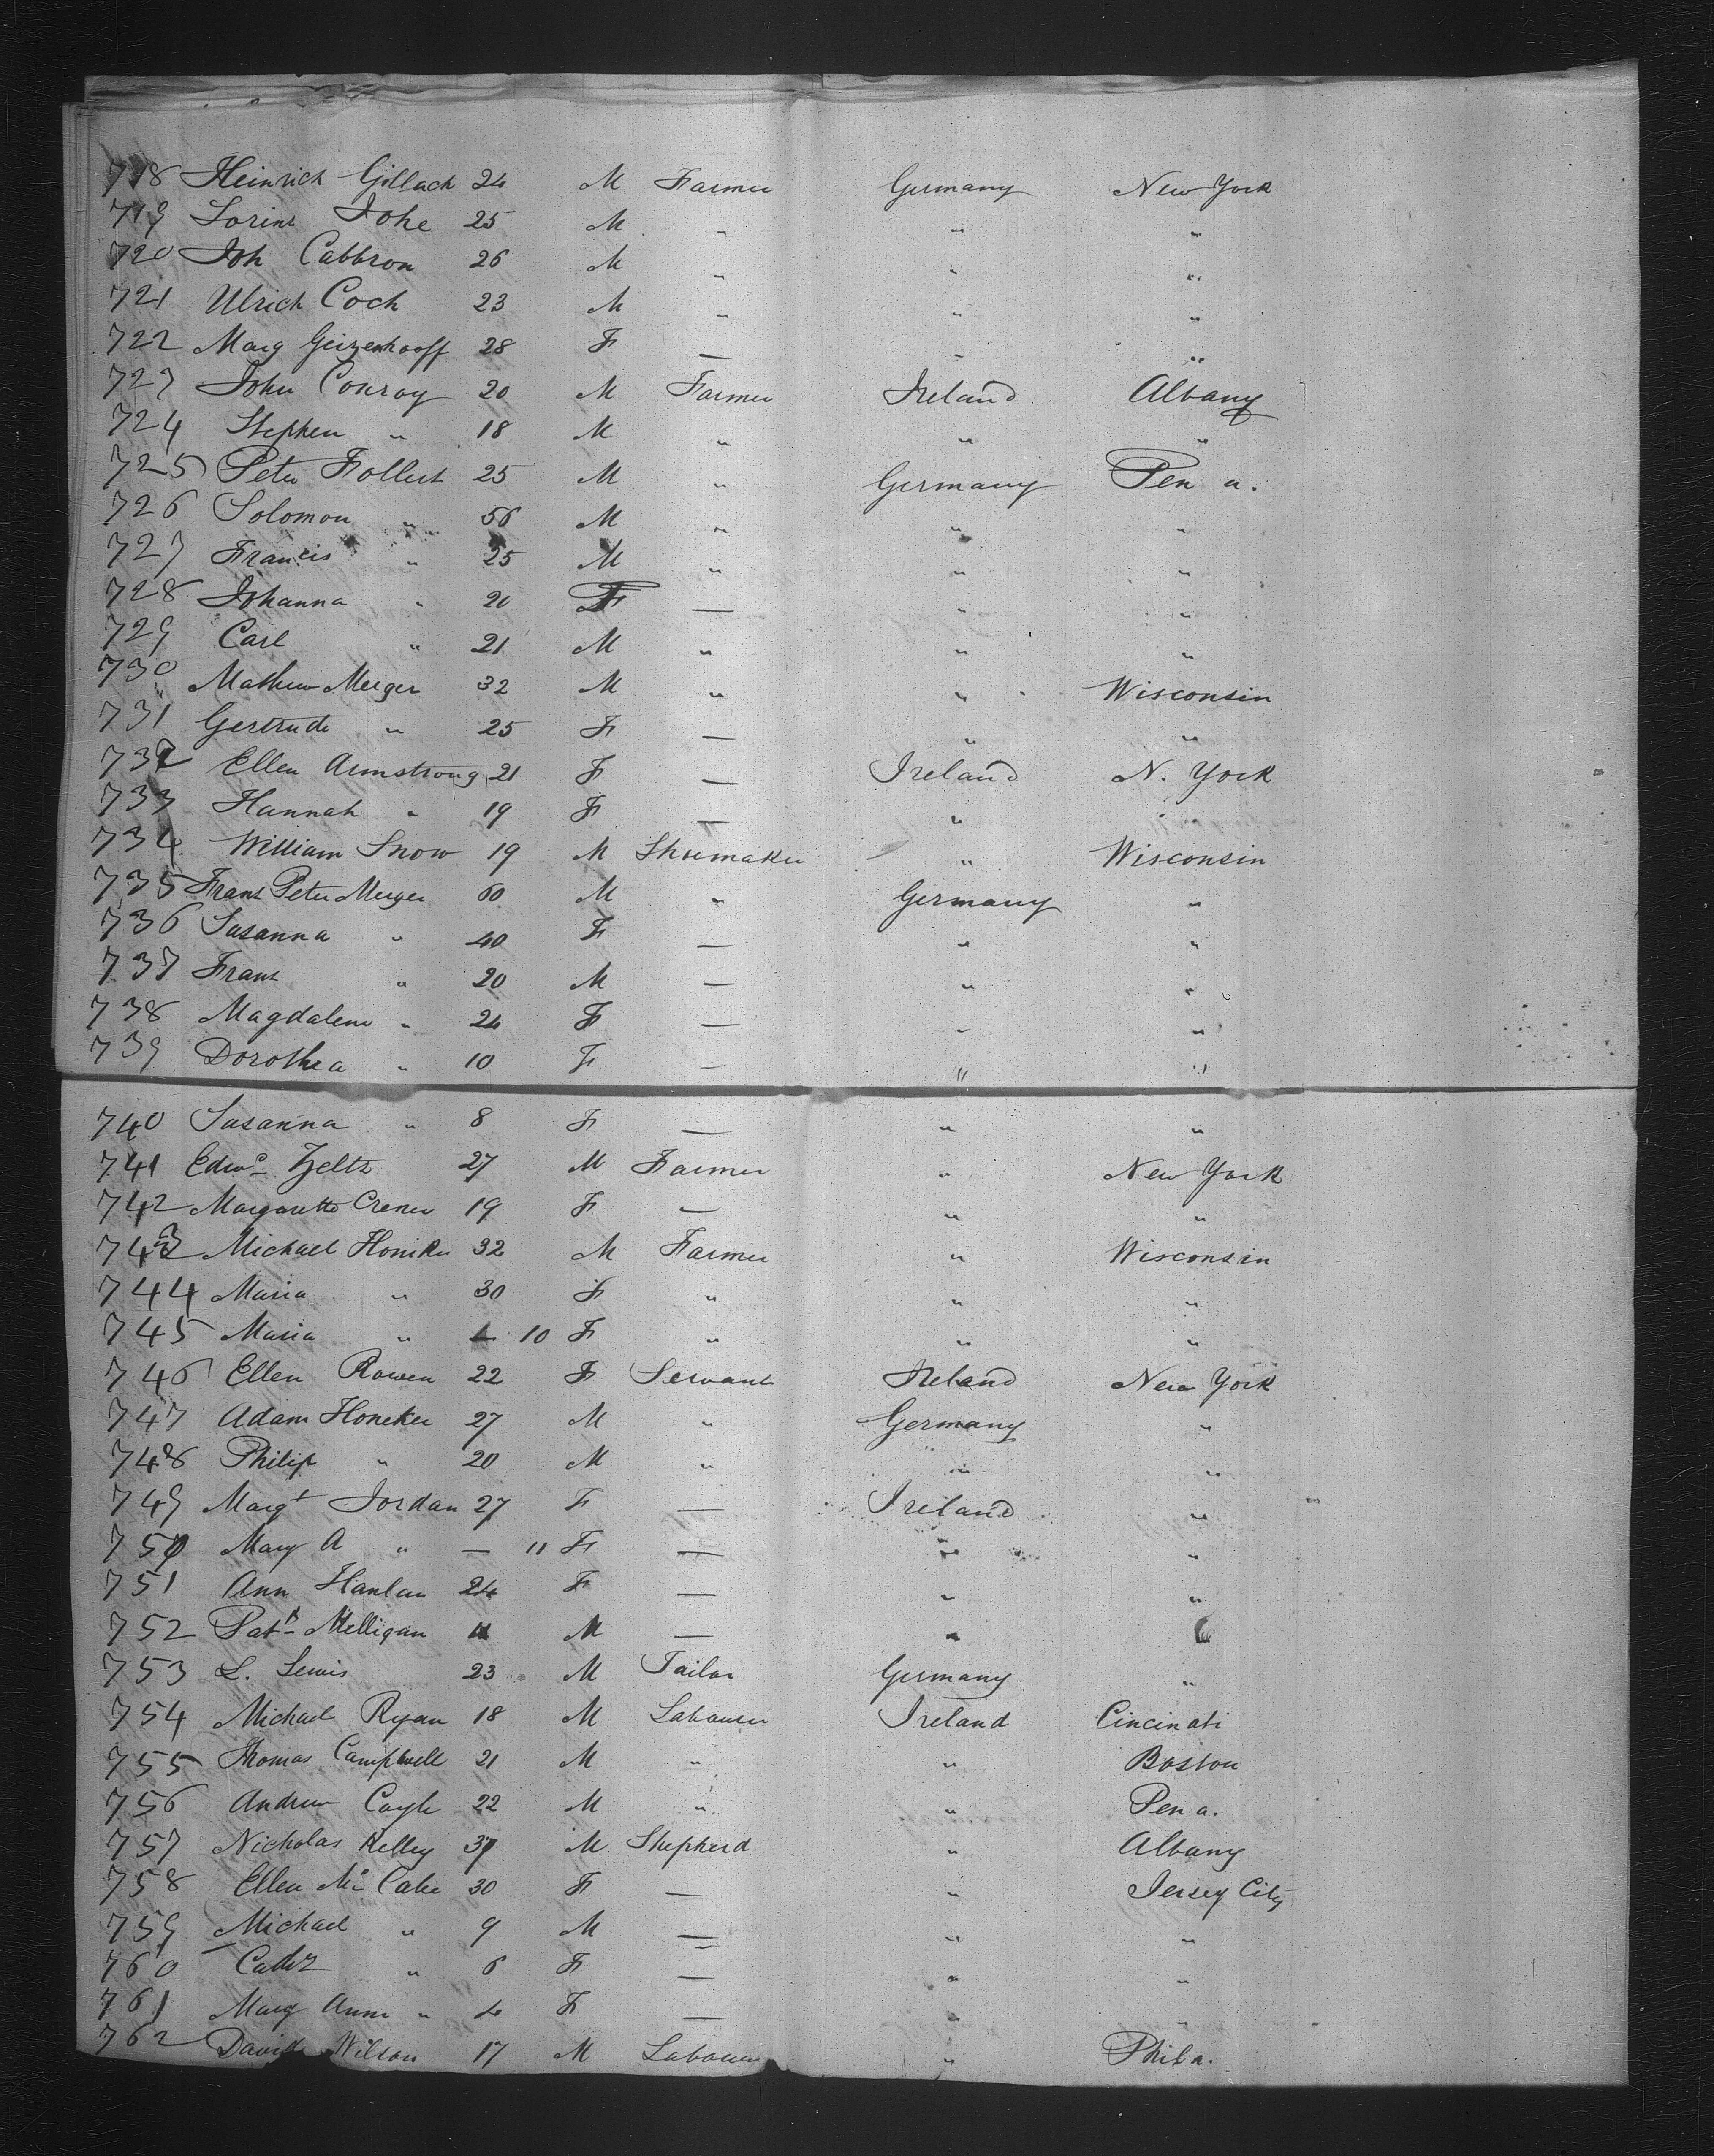 718 Heinrich Gillach 24 M Farmer Germany New York
719 Lorinz Johe 25 M " " "
720 Joh Cabbron 26 M " " "
721 Ulrich Coch 23 M " " "
722 Marg Geizenhooff 28 F — " "
723 John Conroy 20 M Farmer Ireland Albany
724 Stephen " 18 M " " "
725 Peter Follert 25 M " Germany Pen a.
726 Solomon " 56 M " " "
727 Francis " 25 M " " "
728 Johanna " 20 F — " "
729 Carl " 21 M " " "
730 Mathew Meeger 32 M " " Wisconsin
731 Gertrude " 25 F — " "
732 Ellen Armstrong 21 F — Ireland N. York
733 Hannah " 19 F — " "
734 William Snow 19 M Shoemaker " Wisconsin
735 Franz Peter Meeger 60 M " Germany "
736 Susanna " 40 F — " "
737 Franz " 20 M — " "
738 Magdalena " 24 F — " "
739 Dorothea " 10 F — " "
740 Susanna " 8 F — " "
741 Edwd Zeltz 27 M Farmer " New York
742 Margarette Crener 19 F — " "
743 Michael Honiker 32 M Farmer " Wisconsin
744 Maria " 30 F " " "
745 Maria " 10 F " " "
746 Ellen Rowen 22 F Servant Ireland New York
747 Adam Honeker 27 M " Germany "
748 Philip " 20 M " " "
749 Margt Jordan 27 F — Ireland "
750 Mary A " — 11 F — " "
751 Ann Hanlan 24 F — " "
752 Patk Melligan 11 M — " "
753 L. Lewis 23 M Tailor Germany "
754 Michael Ryan 18 M Labourer Ireland Cincinati
755 Thomas Campbell 21 M " " Boston
756 Andrew Coyle 22 M " " Pen a.
757 Nicholas Kelley 37 M Shepherd " Albany
758 Ellen Mc Cabe 30 F — " Jersey City
759 Michael " 9 M — " "
760 Cathz " 6 F — " "
761 Mary Anne " 4 F — " "
762 David Wilson 17 M Labourer " Phila.